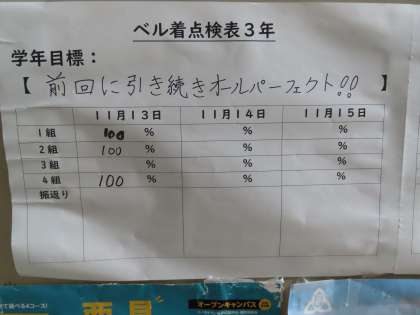 ベル着点検表３年
学年目標：
【 前回に引き続きオールパーフェクト!! 】
１１月１３日 １１月１４日 １１月１５日
１組 100 % % %
２組 100 % % %
３組 % % %
４組 100 % % %
振返り
オープンキャンパス